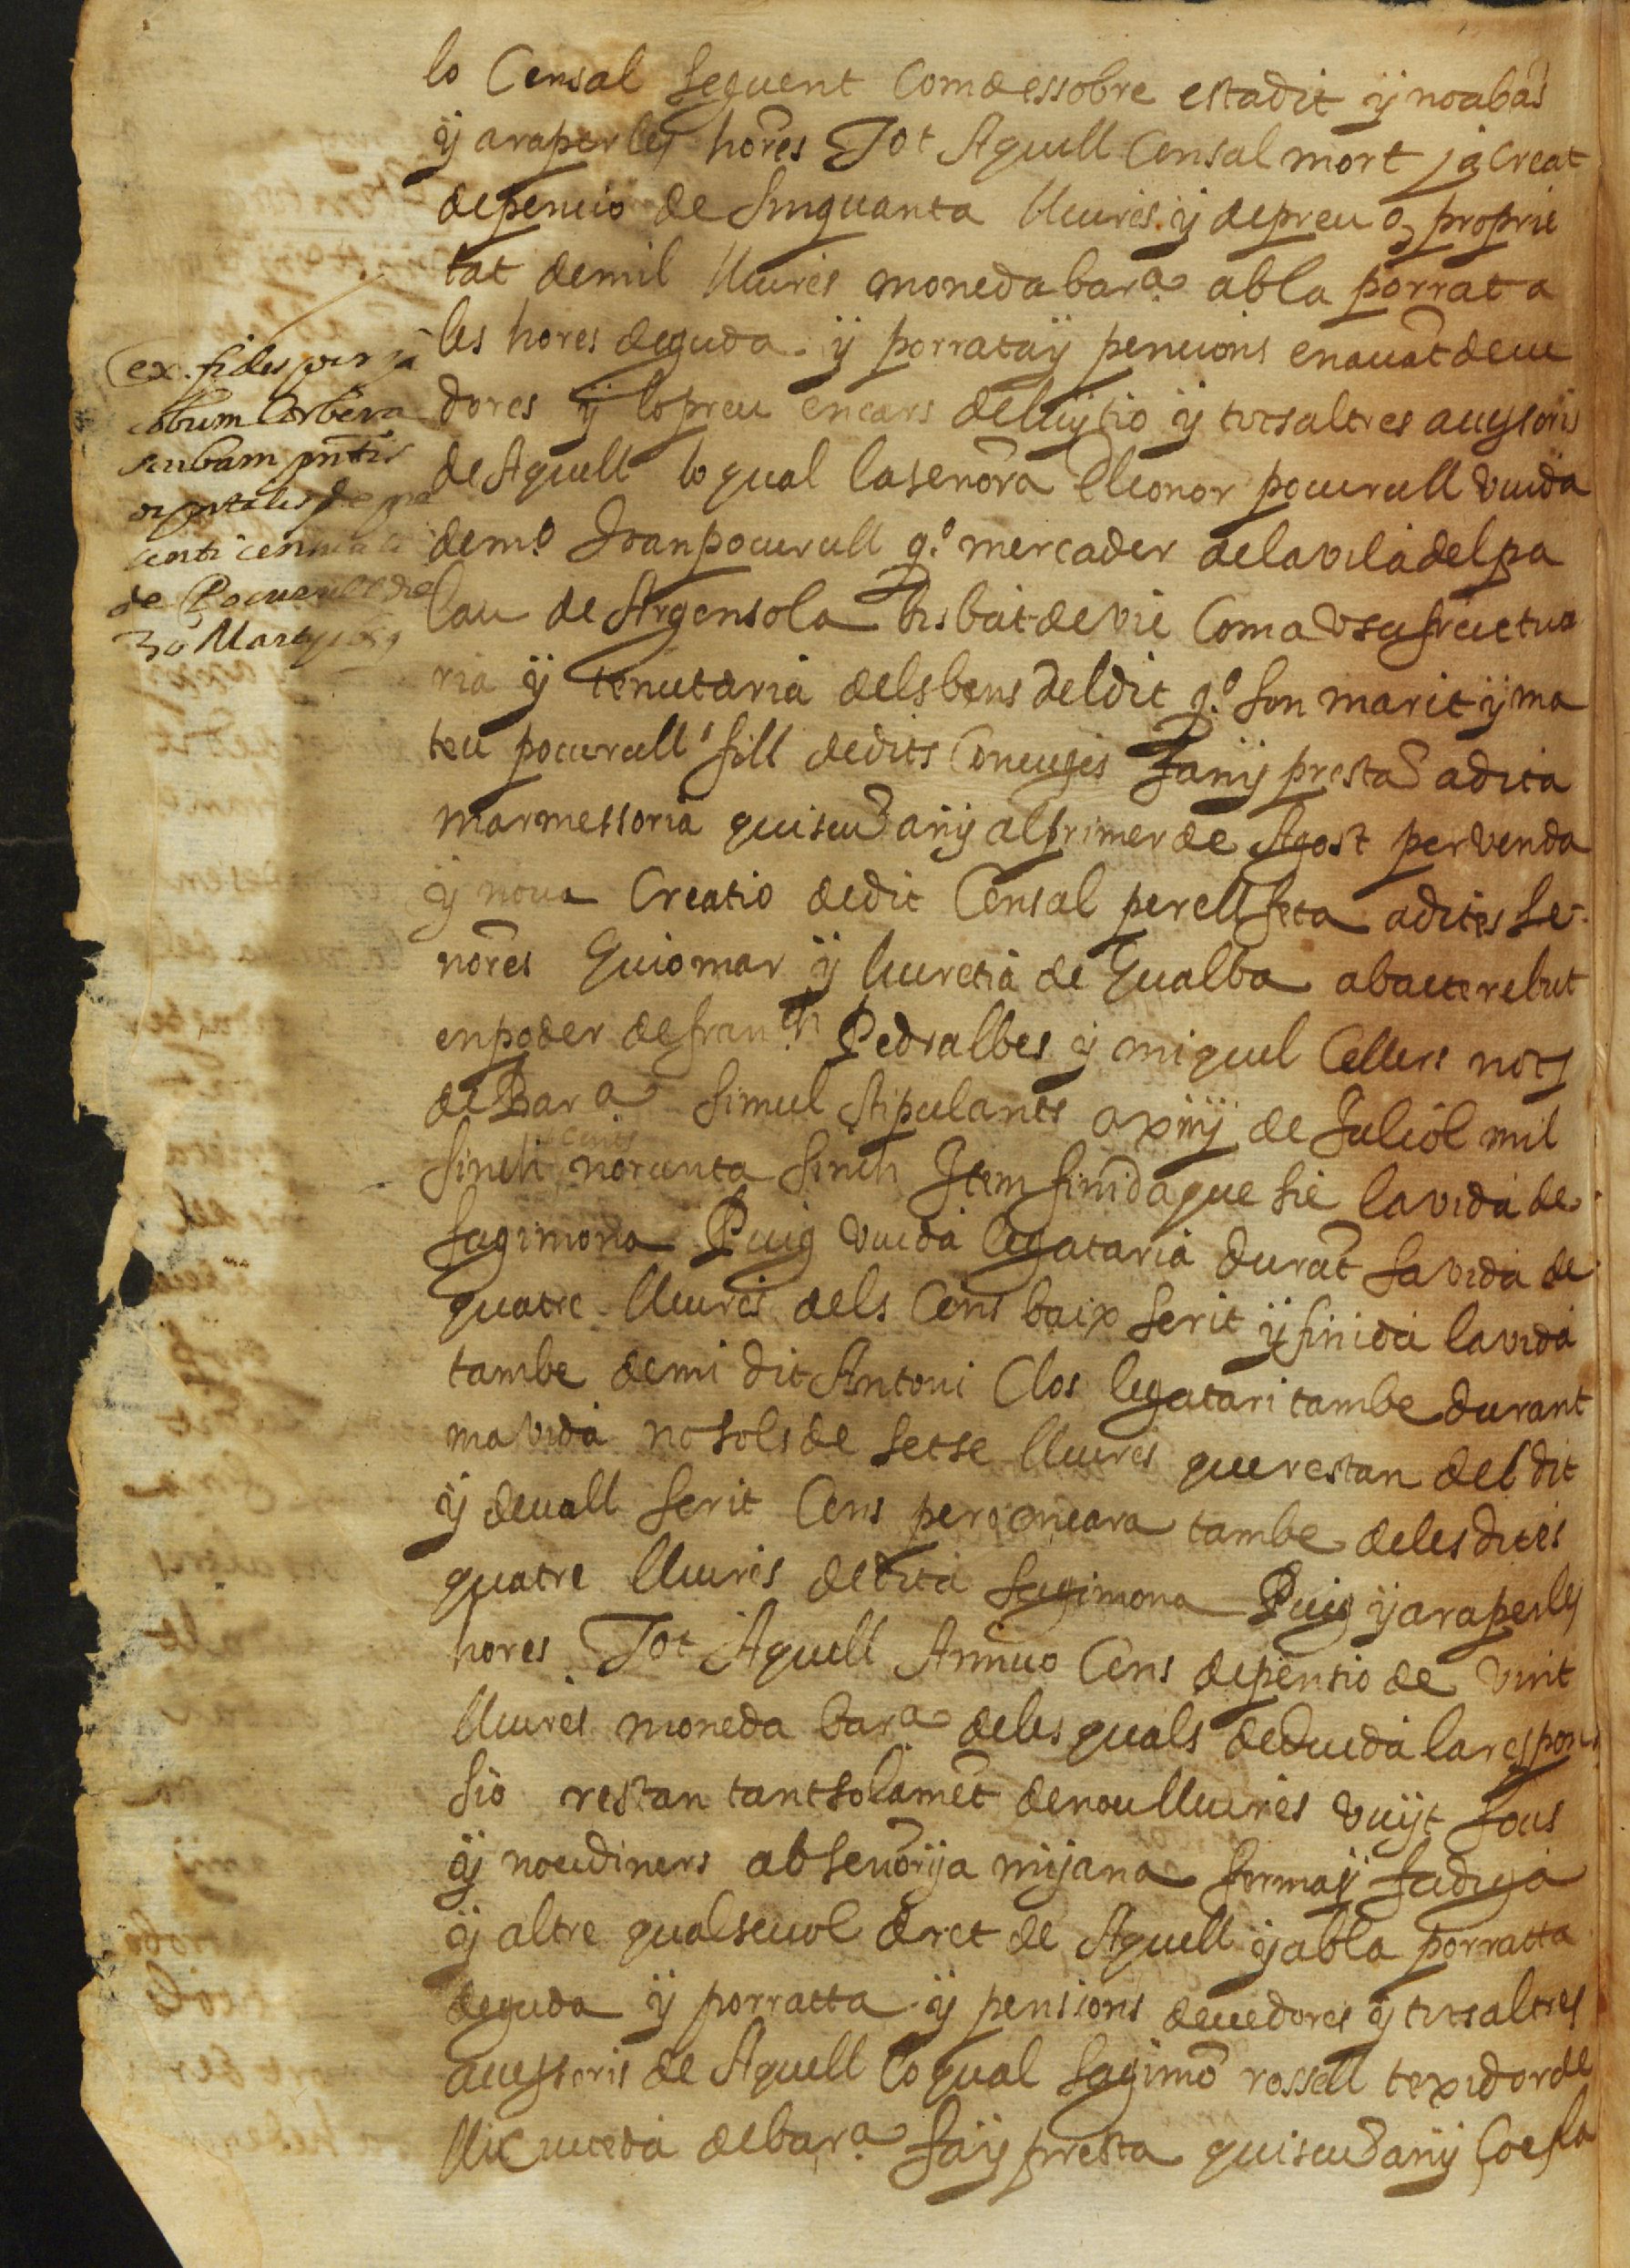 lo Censal seguent com dessobre esta dit ÿ no abas
ÿ ara per les hores Tot Aquell Censal mort ja creat
de pencio de sinquanta lliures ÿ de preu o proprie
tat de mil lliures moneda bar.ª ab la porrata
les hores deguda ÿ porrata ÿ pencions enauāt deue
dores ÿ lo preu encars de lluÿtio ÿ tots altres accessoris
de Aquell lo qual la senōra Elionor pocurull viuda
de m.º Joan pocurull q.º mercader de la vila del pa
lau de Argensola bisbat de vic com a vsufructua
ria ÿ tenutaria dels bens del dit q.º son marit ÿ ma
teu pocurull fill de dits Coniuges fan ÿ prestan a dita
marmessoria quiscun anÿ al primer de Agost per venda
ÿ noua Creatio de dit Censal per ell feta a dites se
nōres Guiomar ÿ lluretia de Gualba ab acte rebut
en poder de fran.ch Pedralbes ÿ miquel Cellers nots
de Bar.ª simul stipulants a xiiij de Juliol mil
sinch cents noranta sinch Item finida que sie la vida de
sagimona Puig viuda legataria durāt sa vida de
quatre lliures dels Cens baix scrit ÿ finida la vida
tambe de mi dit Antoni Clos legatari tambe durant
ma vida no sols de setse lliures que restan del dit
ÿ deuall scrit Cens pero encara tambe de les dites
quatre lliures de dita sagimona Puig ÿ ara per les
hores Tot Aquell Annuo Cens de pensio de vint
lliures moneda bar.ª de les quals deduida la respon
sio restan tant solamēt de nou lliures vuÿt sous
ÿ nou diners ab senōrÿa mijana ferma ÿ fadiga
ÿ altre qualseuol dret de Aquell ÿ ab la porratta
deguda ÿ porratta ÿ pensions deuedores ÿ tots altres
accessoris de Aquell lo qual sagimō rossell texidor de
lli Ciutedà de bar.ª fa ÿ presta quiscun anÿ
ex. fides per ja
cobum Cerbera
de Pocurull die
30 Martÿ